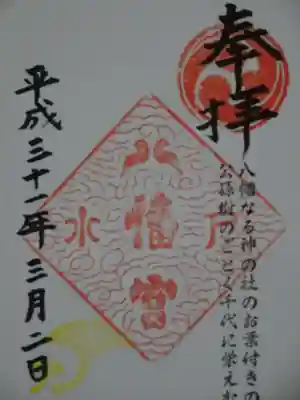 奉拝
八幡なる神の杜のお葉付きの
公孫樹のごとく千代に栄えむ
水戸
八幡宮
平成三十一年三月二日